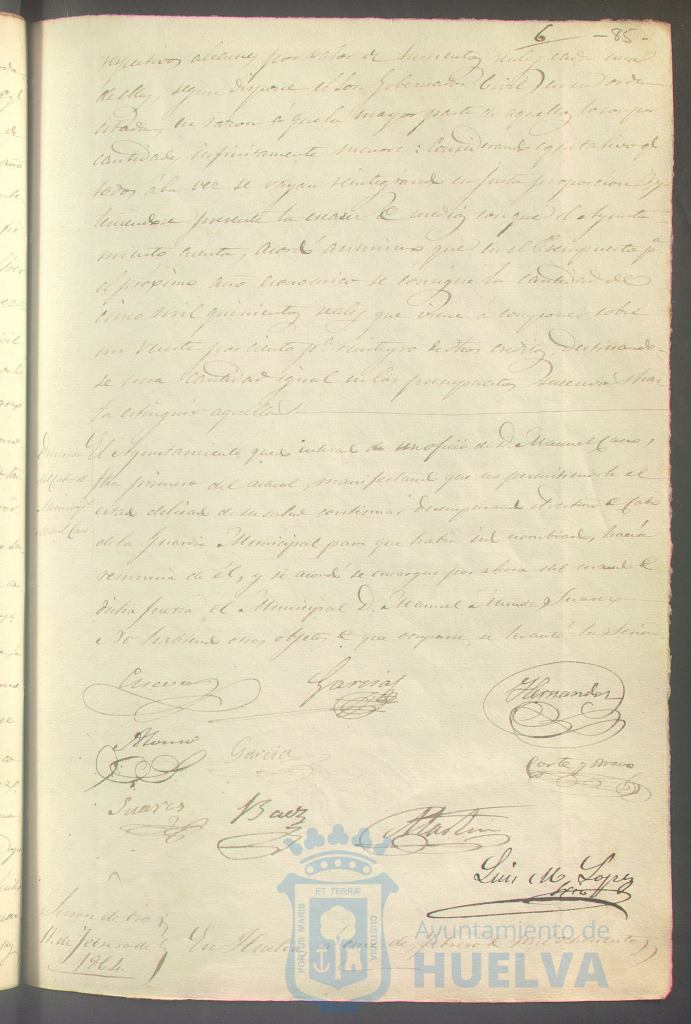 6 - 85 -
respectivos alcances por valor de trescientos reales cada uno
de ellos, segun dispone el Sor. Gobernador Civil en su orden
citada, en razon á que la mayor parte de aquellos lo son por
cantidades infinitamente menores: Considerando equitativo q.e
todos á la vez se vayan reintegrando en justa proporcion y
teniendo presente la escasez de medios con que el Ayunta-
miento cuenta, acordó unánime que en el Presupuesto p.a
el próximo año económico se consigne la cantidad de
cinco mil quinientos reales que viene á componer sobre
un veinte por ciento p.a reintegro de dhos creditos, destinando-
se una cantidad igual en los presupuestos sucesivos has-
ta estinguir aquellos.
Dimision
del Cabo de
Municip.s
Man.l Cano
El Ayuntamiento quedó enterado de un oficio de D. Manuel
fha primero del actual, manifestando que no permitiendole el
estado delicado de su salud continuar desempeñando el destino de Cabo
de la Guardia Municipal para que habia sido nombrado, hacia
renuncia de él, y se acordó se encargue por ahora del mando de
dicha fuerza el Municipal D. Manuel Suarez
No habiendo otros objetos de que ocuparse, se levantó la sesion
Garcia
Hernandez
Alonso
Garcia
Corte y Bravo
Suarez
Baez
Martin
Luis M. Lopez
Srio
Sesion de dia
11 de Febrero de
1864.
En Huelva á once de febrero de mil ochocientos
PORTUS MARIS ET TERRÆ CUSTODIA
Ayuntamiento de
HUELVA